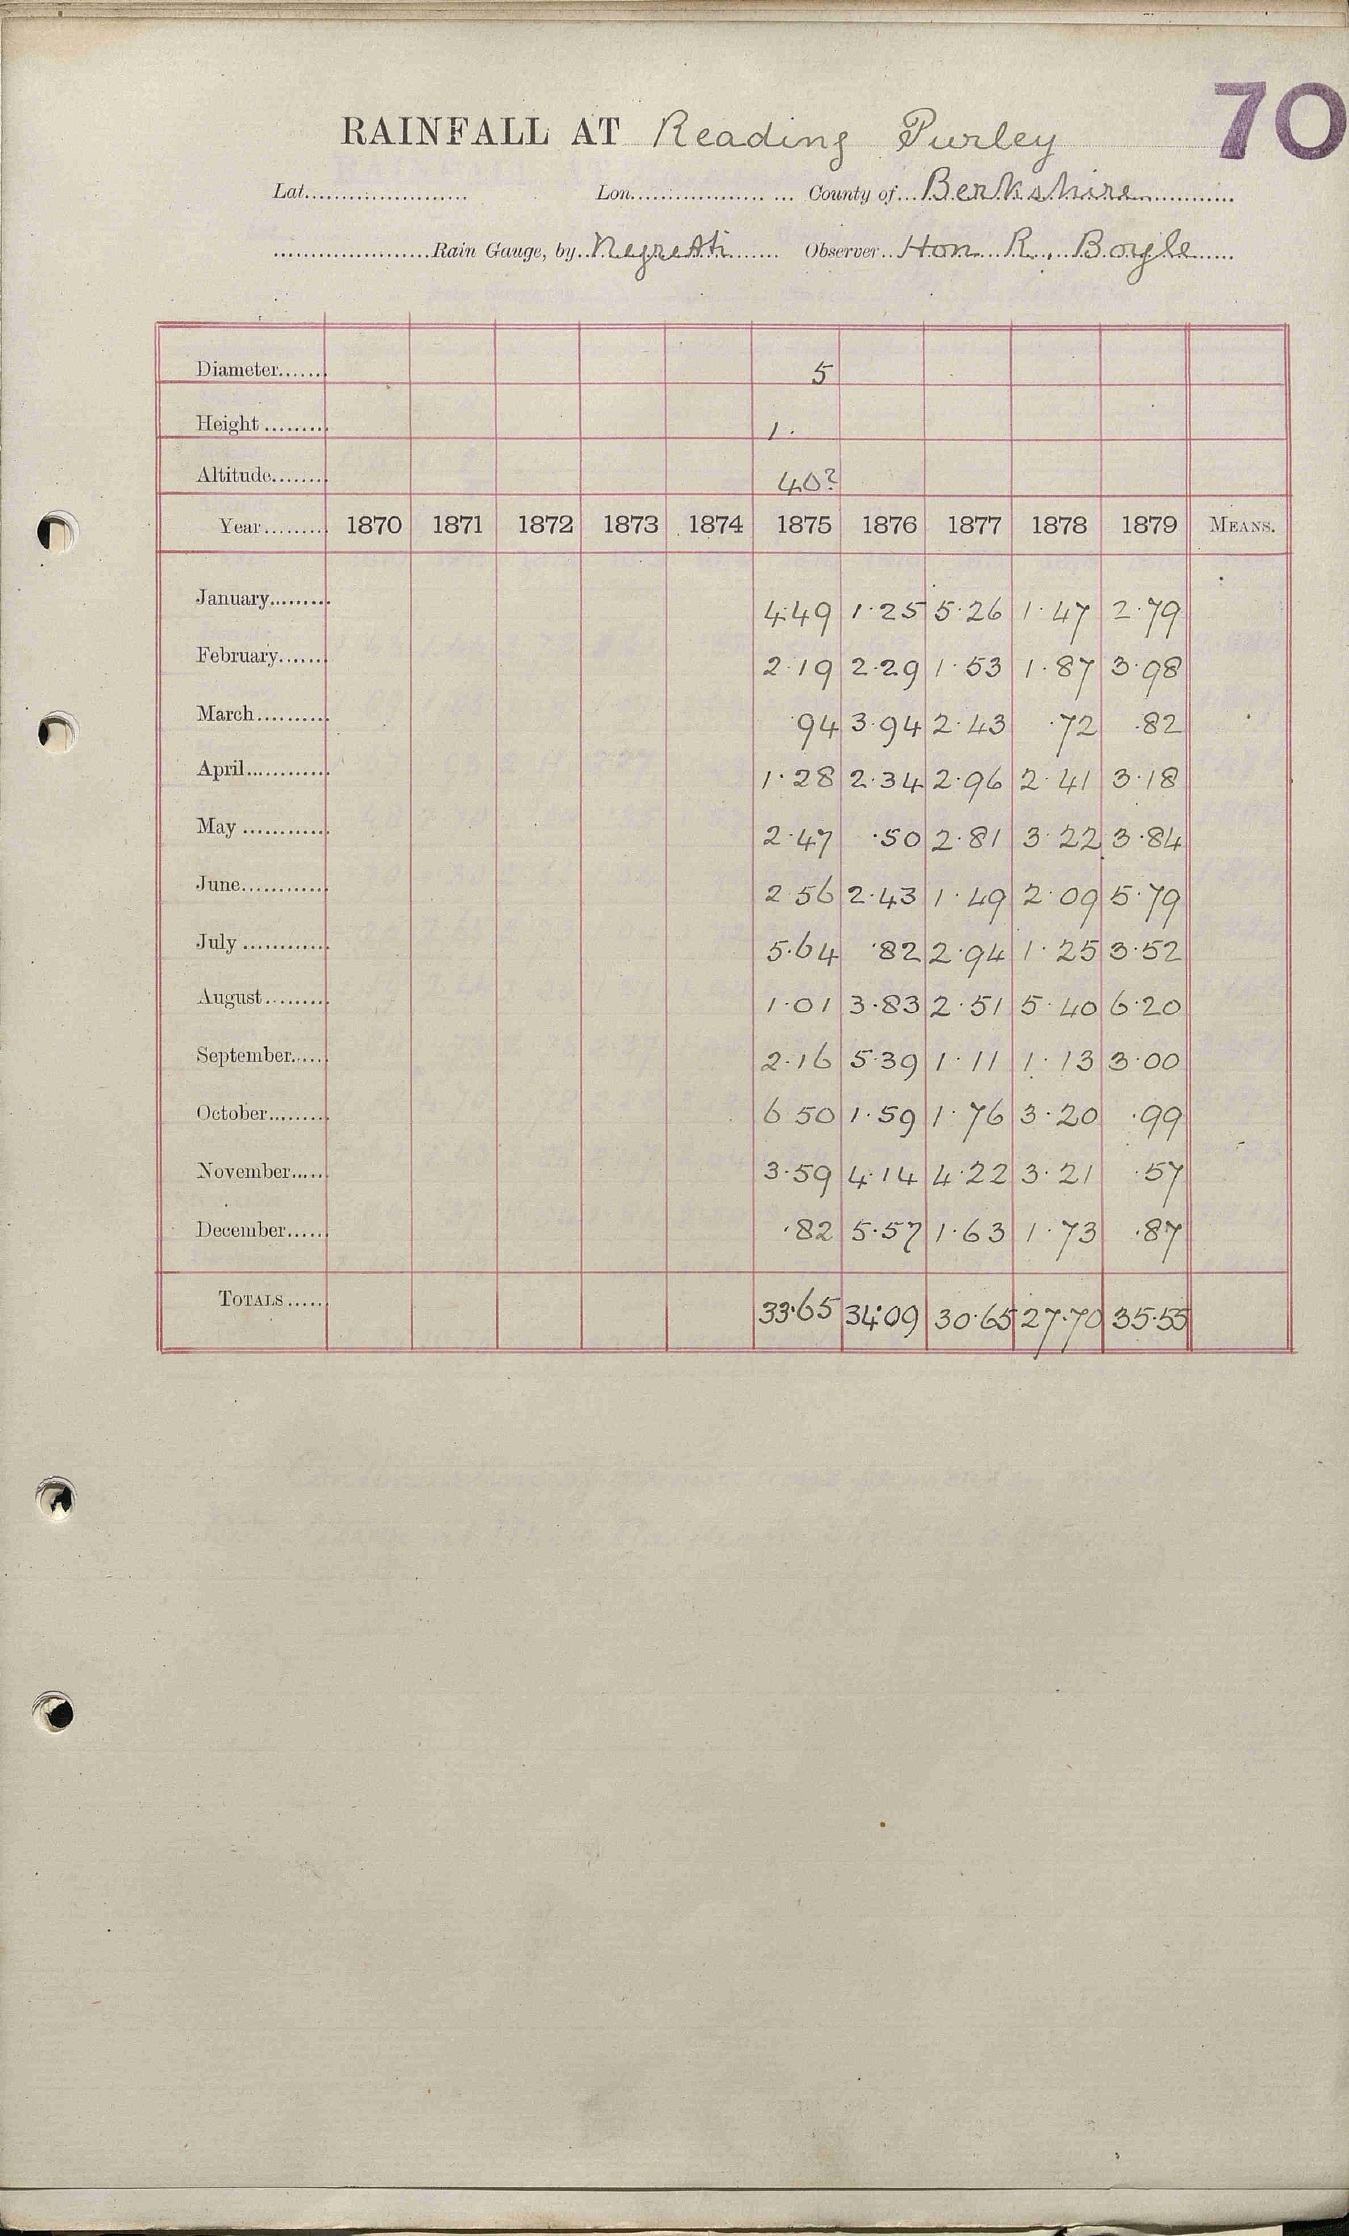 70
RAINFALL AT Reading Purley
Lat. Lon. County of Berkshire
Rain Gauge, by Negretti Observer Hon R. Boyle
Diameter 5
Height 1.
Altitude 40?
Year 1870 1871 1872 1873 1874 1875 1876 1877 1878 1879 MEANS.
January 4.49 1.25 5.26 1.47 2.79
February 2.19 2.29 1.53 1.87 3.98
March .94 3.94 2.43 .72 .82
April 1.28 2.34 2.96 2.41 3.18
May 2.47 .50 2.81 3.22 3.84
June 2.56 2.43 1.49 2.09 5.79
July 5.64 .82 2.94 1.25 3.52
August 1.01 3.83 2.51 5.40 6.20
September 2.16 5.39 1.11 1.13 3.00
October 6.50 1.59 1.76 3.20 .99
November 3.59 4.14 4.22 3.21 .57
December .82 5.57 1.63 1.73 .87
TOTALS 33.65 34.09 30.65 27.70 35.55